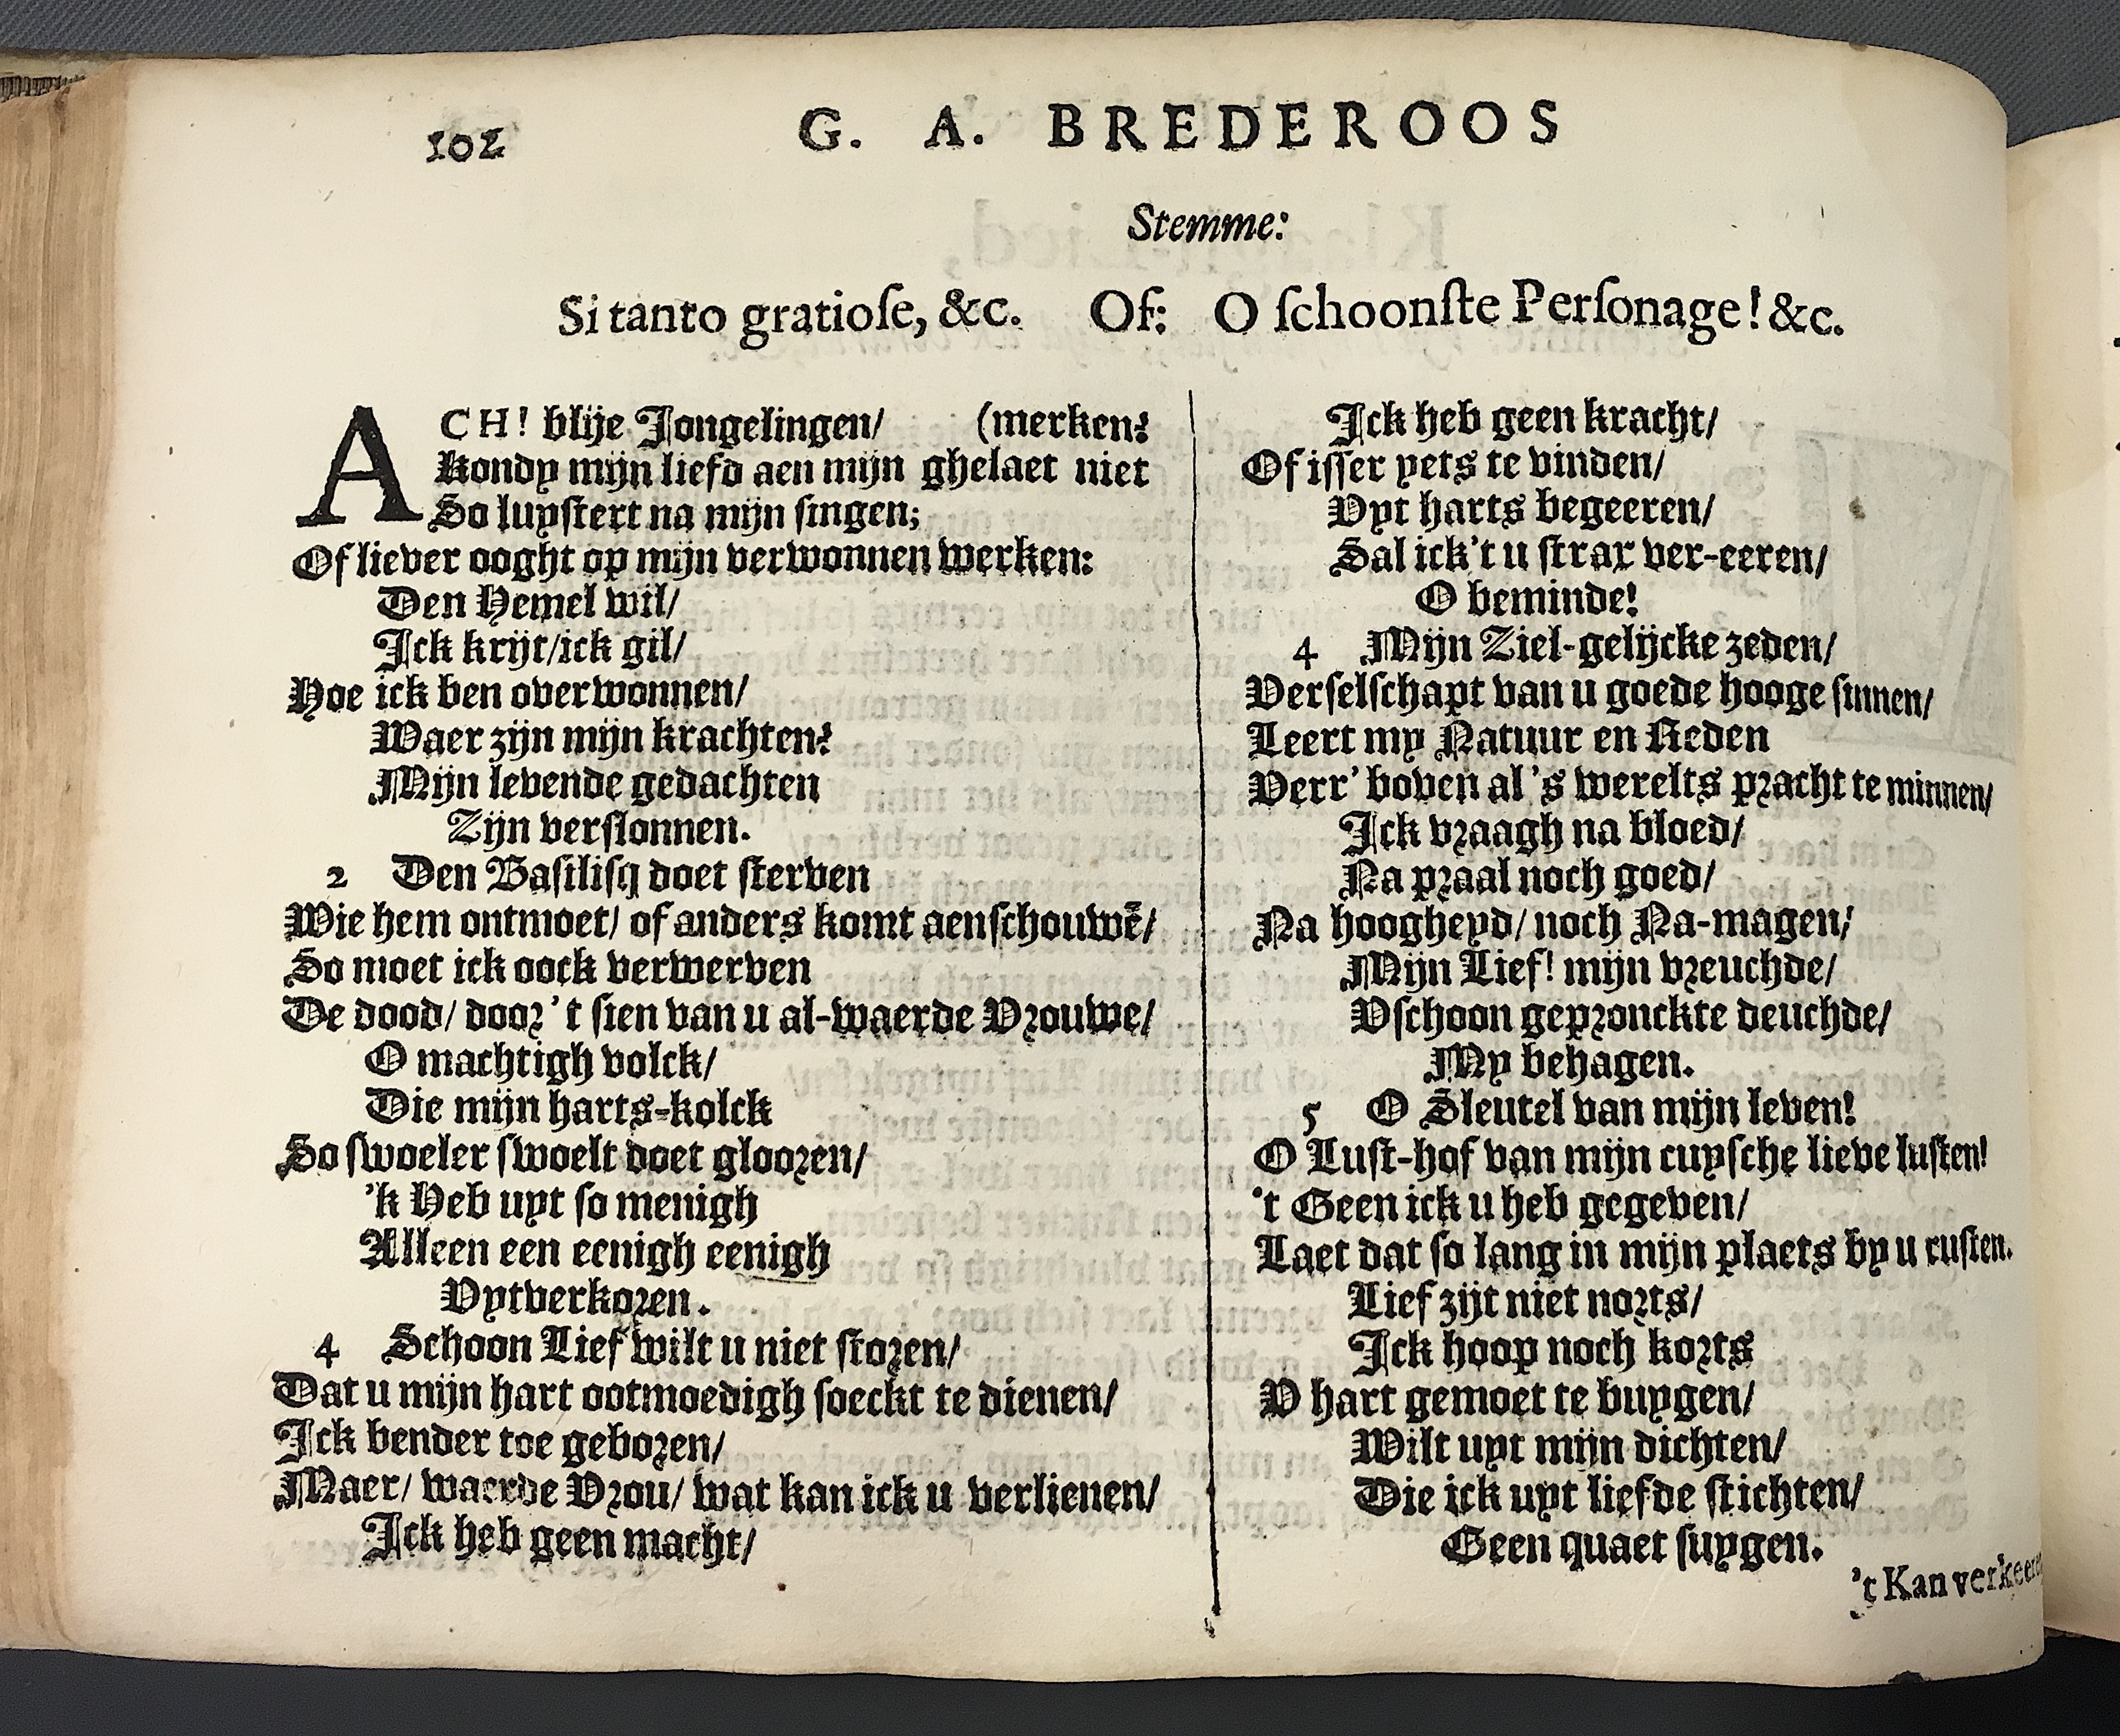 102
G. A. BREDEROOS
Stemme:
Si tanto gratiose, &c. Of: O schoonste Personage! &c.
ACH! blije Jongelingen/ (merken?
Kondy mijn liefd aen mijn ghelaet niet
So luystert na mijn singen;
Of liever ooght op mijn verwonnen werken:
Den Hemel wil/
Ick krijt/ick gil/
Hoe ick ben overwonnen/
Waer zijn mijn krachten?
Mijn levende gedachten
Zijn verslonnen.
2 Den Basilisq doet sterven
Wie hem ontmoet/ of anders komt aenschouwē/
So moet ick oock verwerven
De dood/ door 't sien van u al-waerde Vrouwe/
O machtigh volck/
Die mijn harts-kolck
So swoeler swoelt doet glooren/
'k Heb uyt so menigh
Alleen een eenigh eenigh
Vytverkoren.
4 Schoon Lief wilt u niet storen/
Dat u mijn hart ootmoedigh soeckt te dienen/
Ick bender toe geboren/
Maer/ waerde Vrou/ wat kan ick u verlienen/
Ick heb geen macht/
Ick heb geen kracht/
Of isser yets te vinden/
Vyt harts begeeren/
Sal ick't u strax ver-eeren/
O beminde!
4 Mijn Ziel-gelijcke zeden/
Verselschapt van u goede hooge sinnen/
Leert my Natuur en Reden
Verr' boven al 's werelts pracht te minnen/
Ick vraagh na bloed/
Na praal noch goed/
Na hoogheyd/ noch Na-magen;
Mijn Lief! mijn vreuchde/
Vschoon gepronckte deuchde/
My behagen.
5 O Sleutel van mijn leven!
O Lust-hof van mijn cuysche lieve lusten!
't Geen ick u heb gegeven/
Laet dat so lang in mijn plaets by u rusten.
Lief zijt niet norts/
Ick hoop noch korts
V hart gemoet te buygen/
Wilt uyt mijn dichten/
Die ick uyt liefde stichten/
Geen quaet suygen.
't Kan verkeeren